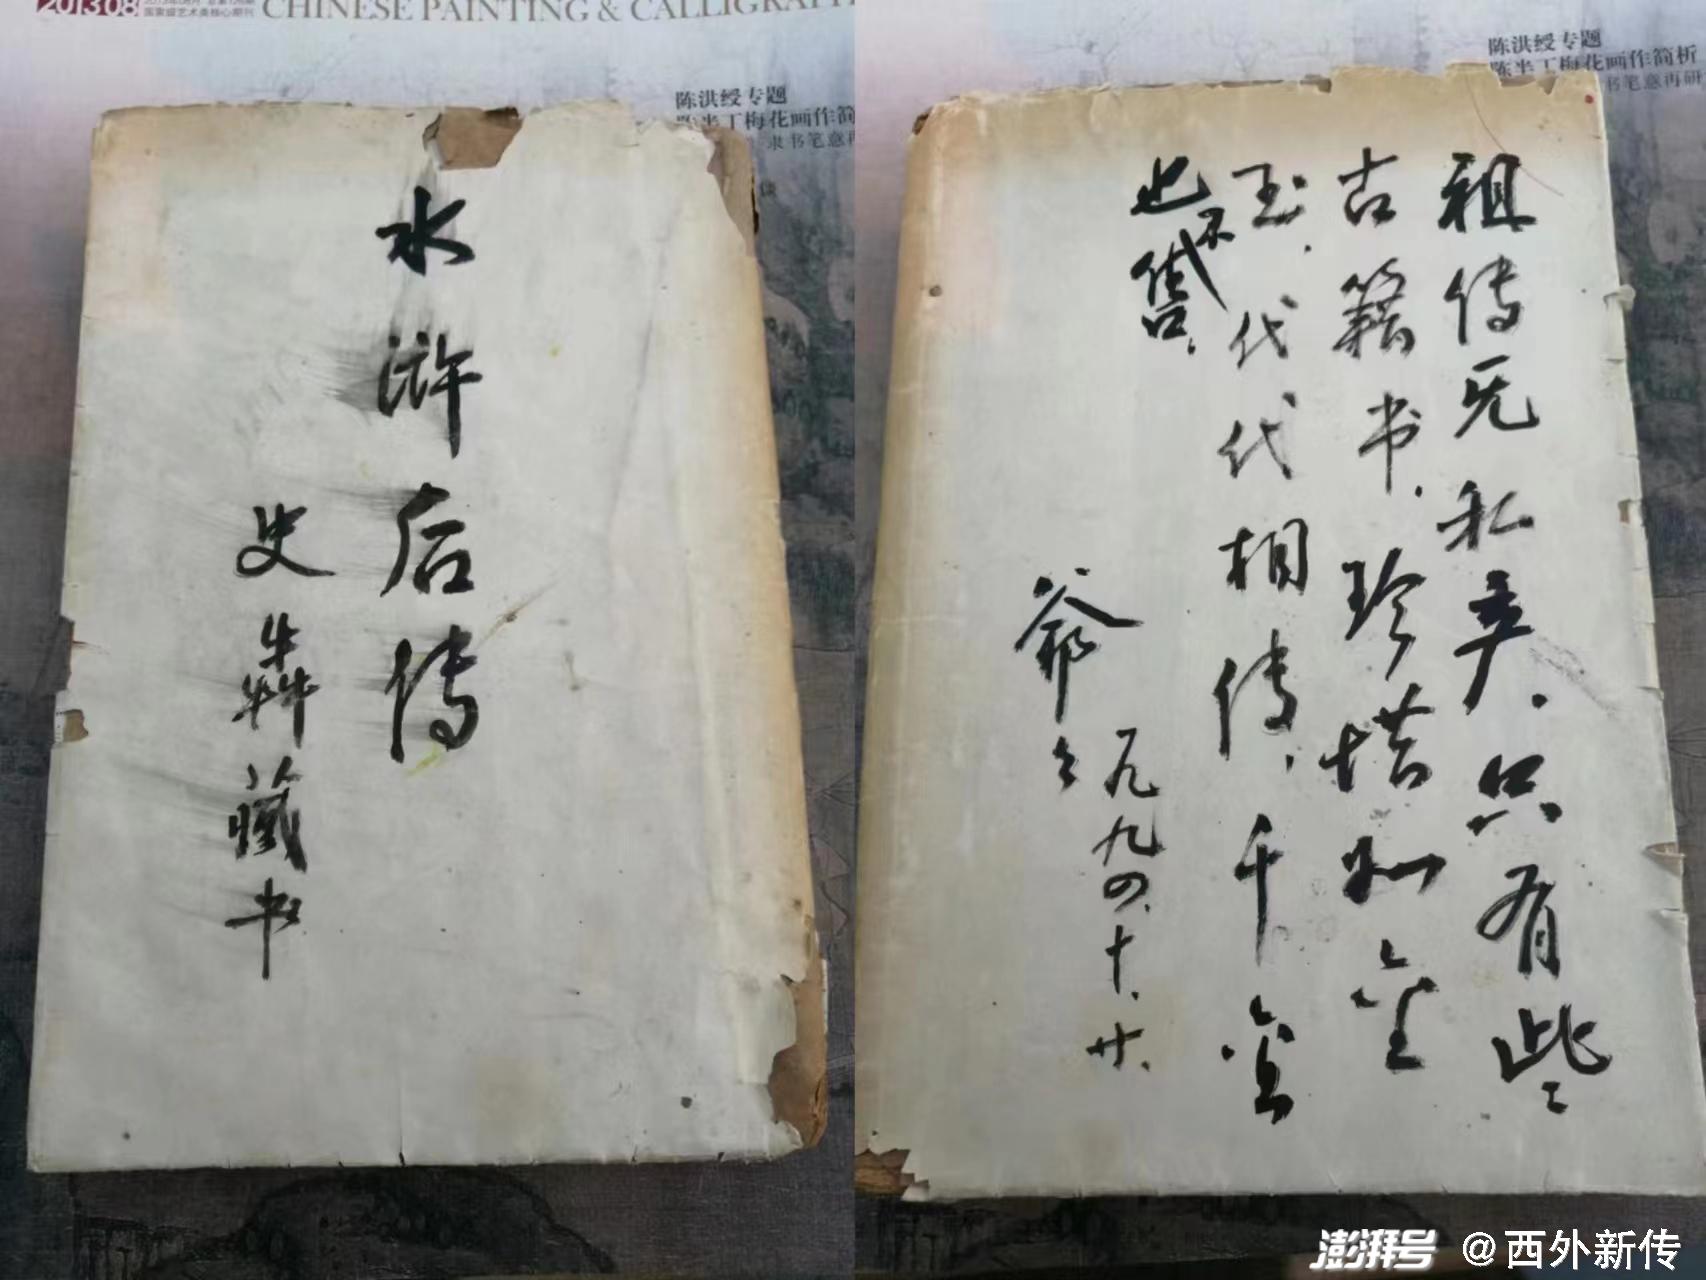 2013·08
国家级艺术类核心期刊
CHINESE PAINTING & CALLIGRAPH
陈洪绶专题
陈半丁梅花画作简
隶书笔意再
水浒后传
史犇藏书
陈洪绶专题
陈半丁梅花画作简析
书笔意再研
祖传无私产,只有些〻
古籍书,珍惜如金
玉,代代相传,千金
也不
爷〻
一九九四.十.廿.
澎湃号 @西外新传